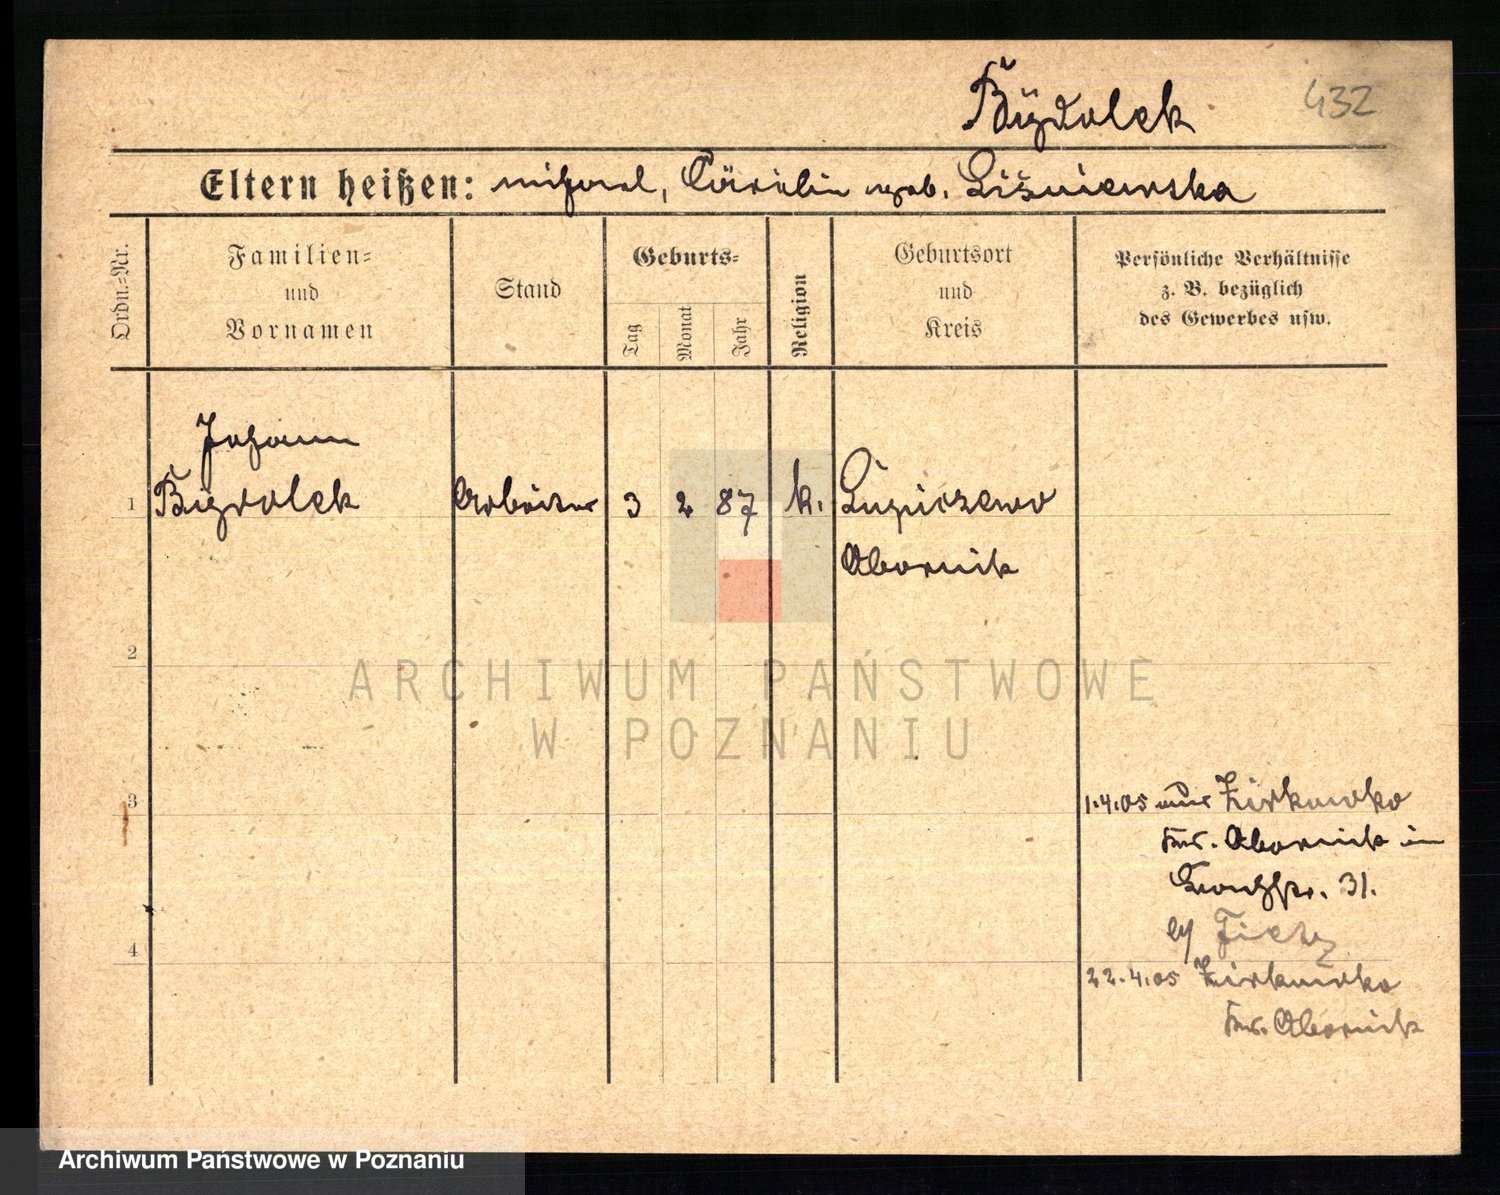 Bÿzdolek 432
Eltern heißen: Michael, geb. Liśniewska
Ordn.=Nr.
Familien=
und
Vornamen
Stand
Geburts=
Tag Monat Jahr
Religion
Geburtsort
und
Kreis
Persönliche Verhältnisse
z. B. bezüglich
des Gewerbes usw.
Johann
1 Arbeiter 3 2 87 k.
Obornik
2
3
1.4.05 aus Zirkowko
Krs. Obornik in
31.
4
22.4.05 Zirkowko
Krs. Obornik
ARCHIWUM PAŃSTWOWE
W POZNANIU
Archiwum Państwowe w Poznaniu